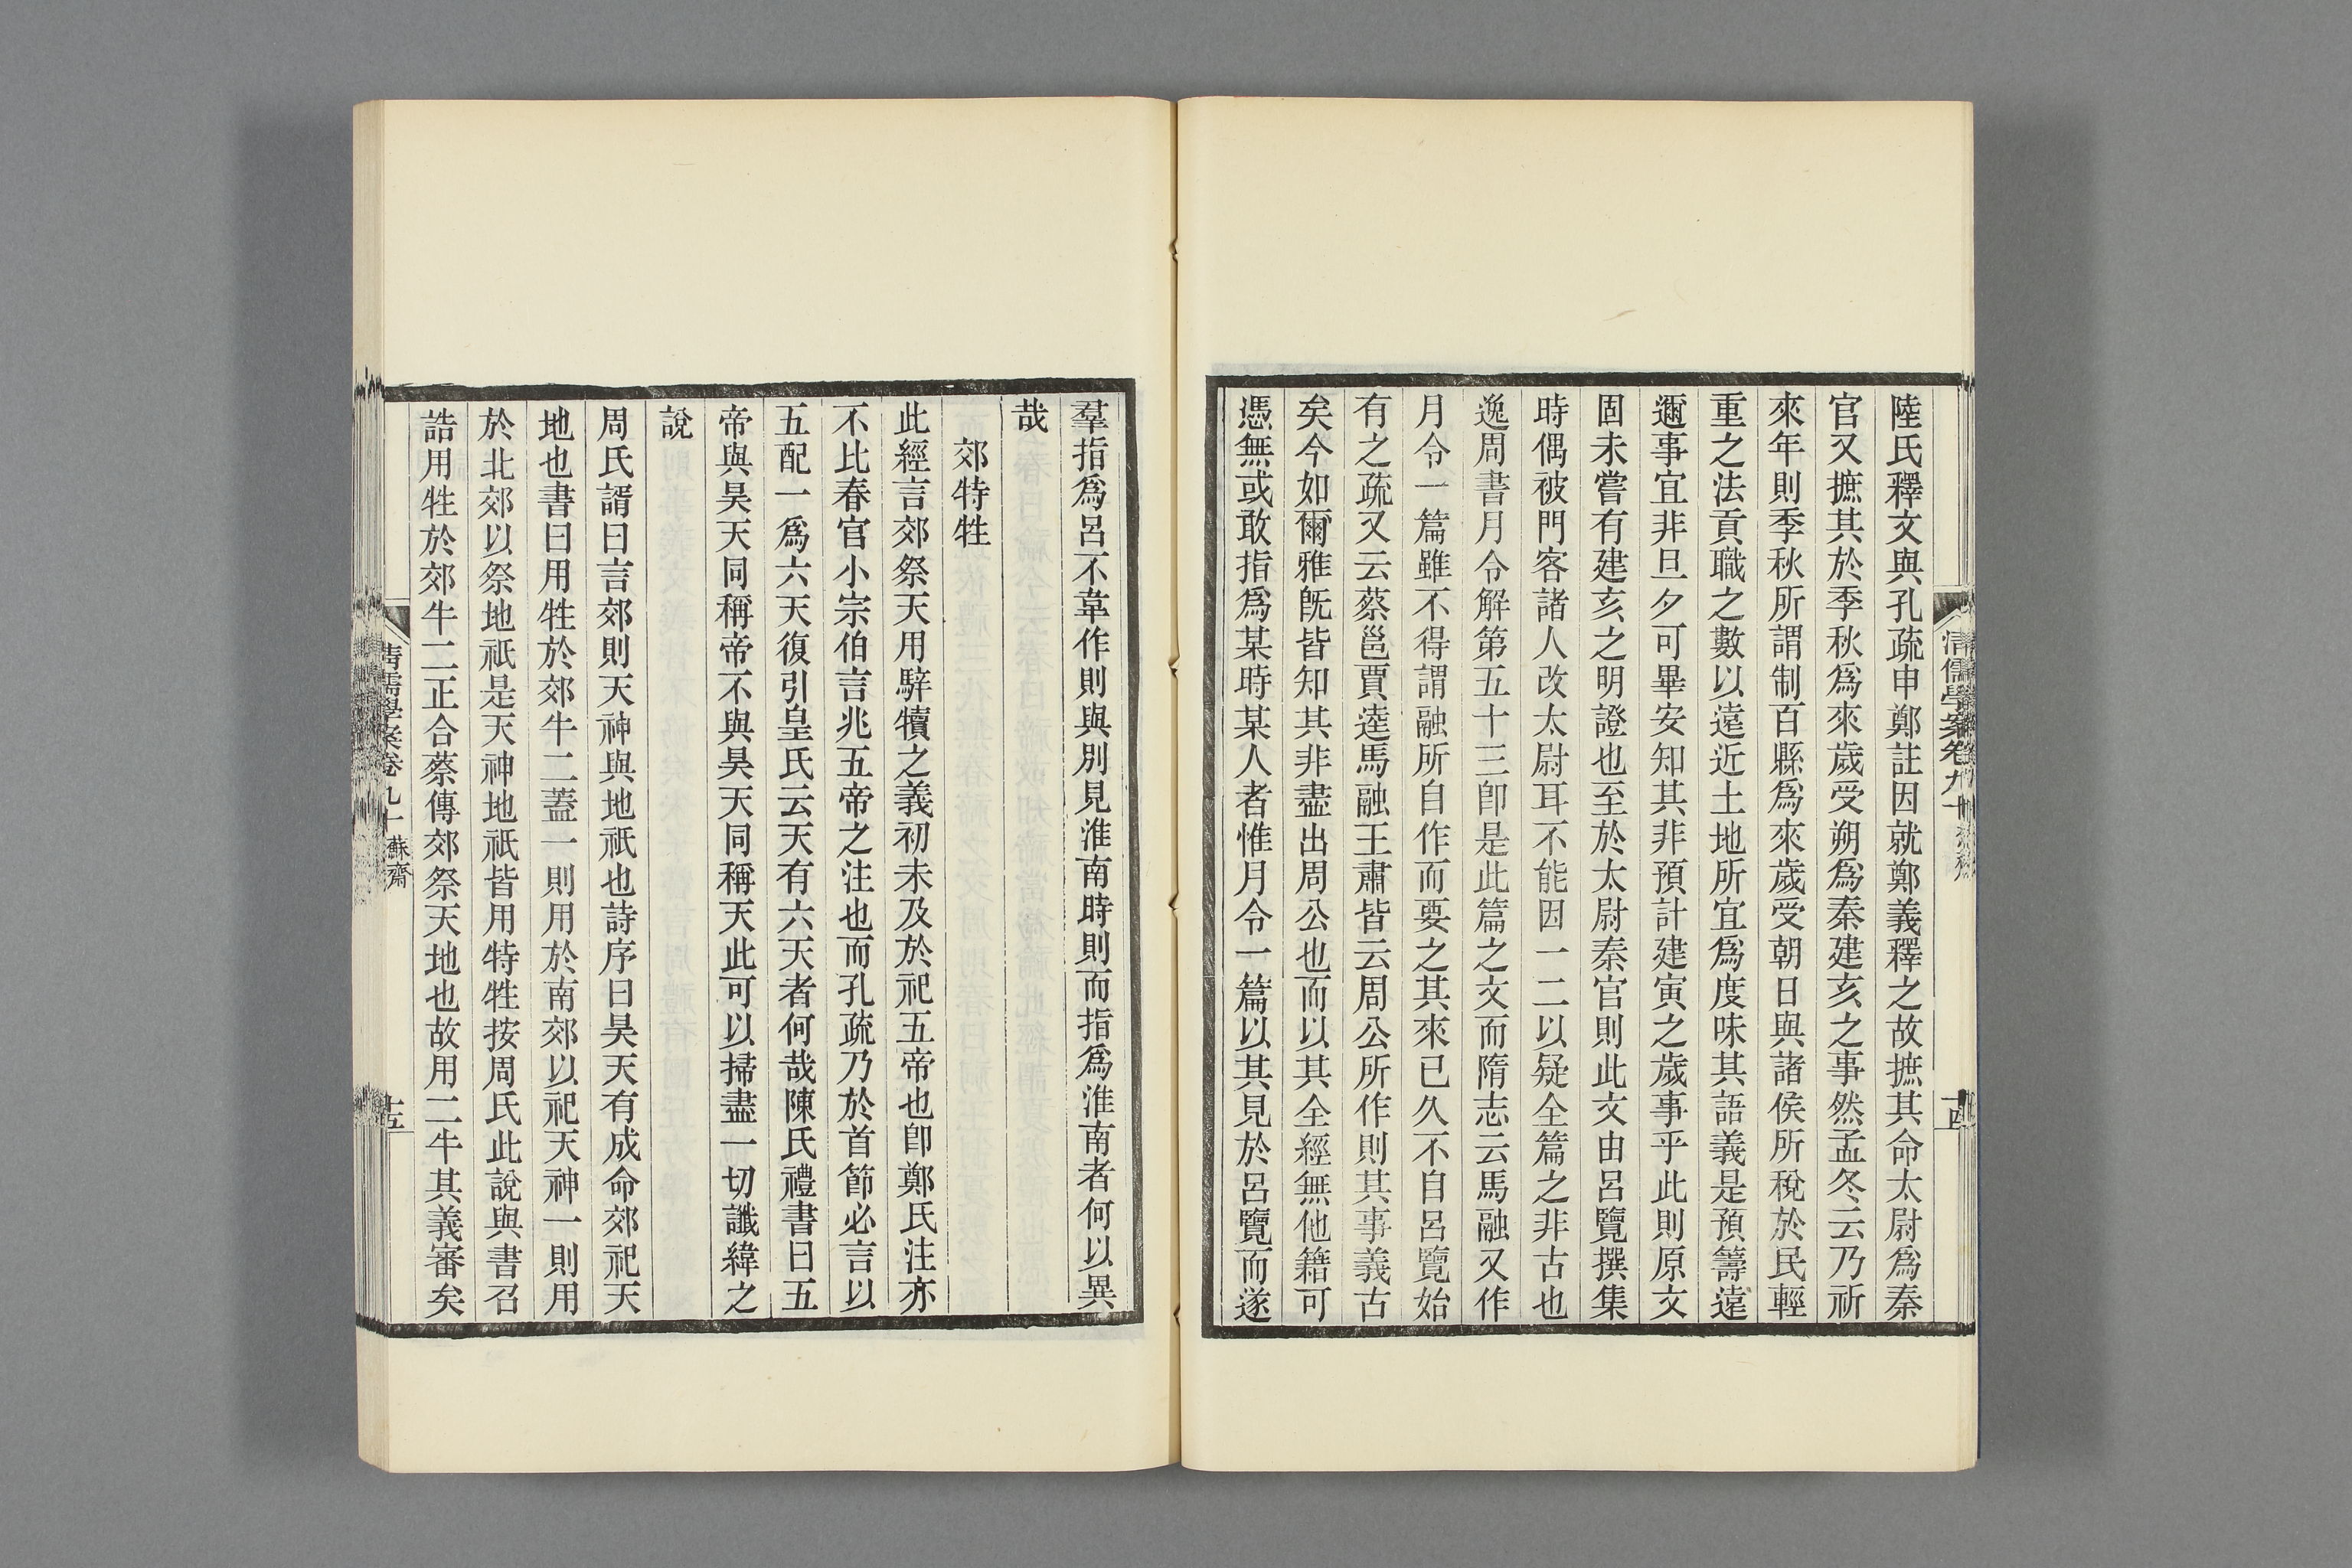 陸氏釋文與孔疏申鄭註因就鄭義釋之故摭其命太尉爲秦
官又摭其於季秋爲來歲受朔爲秦建亥之事然孟冬云乃祈
來年則季秋所謂制百縣爲來歲受朝日與諸侯所稅於民輕
重之法貢職之數以遠近土地所宜爲度味其語義是預籌遠
邇事宜非旦夕可畢安知其非預計建寅之歲事乎此則原文
固未嘗有建亥之明證也至於太尉秦官則此文由呂覽撰集
時偶被門客諸人改太尉耳不能因一二以疑全篇之非古也
逸周書月令解第五十三卽是此篇之文而隋志云馬融又作
月令一篇雖不得謂融所自作而要之其來已久不自呂覽始
有之疏又云蔡邕賈逵馬融王肅皆云周公所作則其事義古
矣今如爾雅旣皆知其非盡出周公也而以其全經無他籍可
憑無或敢指爲某時某人者惟月令一篇以其見於呂覽而遂
清儒學案卷九十
十四
羣指爲呂不韋作則與別見淮南時則而指爲淮南者何以異
哉
郊特牲
此經言郊祭天用騂犢之義初未及於祀五帝也卽鄭氏注亦
不比春官小宗伯言兆五帝之注也而孔疏乃於首節必言以
五配一爲六天復引皇氏云天有六天者何哉陳氏禮書曰五
帝與昊天同稱帝不與昊天同稱天此可以掃盡一切讖緯之
說
周氏諝曰言郊則天神與地祇也詩序曰昊天有成命郊祀天
地也書曰用牲於郊牛二蓋一則用於南郊以祀天神一則用
於北郊以祭地祇是天神地祇皆用特牲按周氏此說與書召
誥用牲於郊牛二正合蔡傳郊祭天地也故用二牛其義審矣
清儒學案卷九十 蘇齋
十五